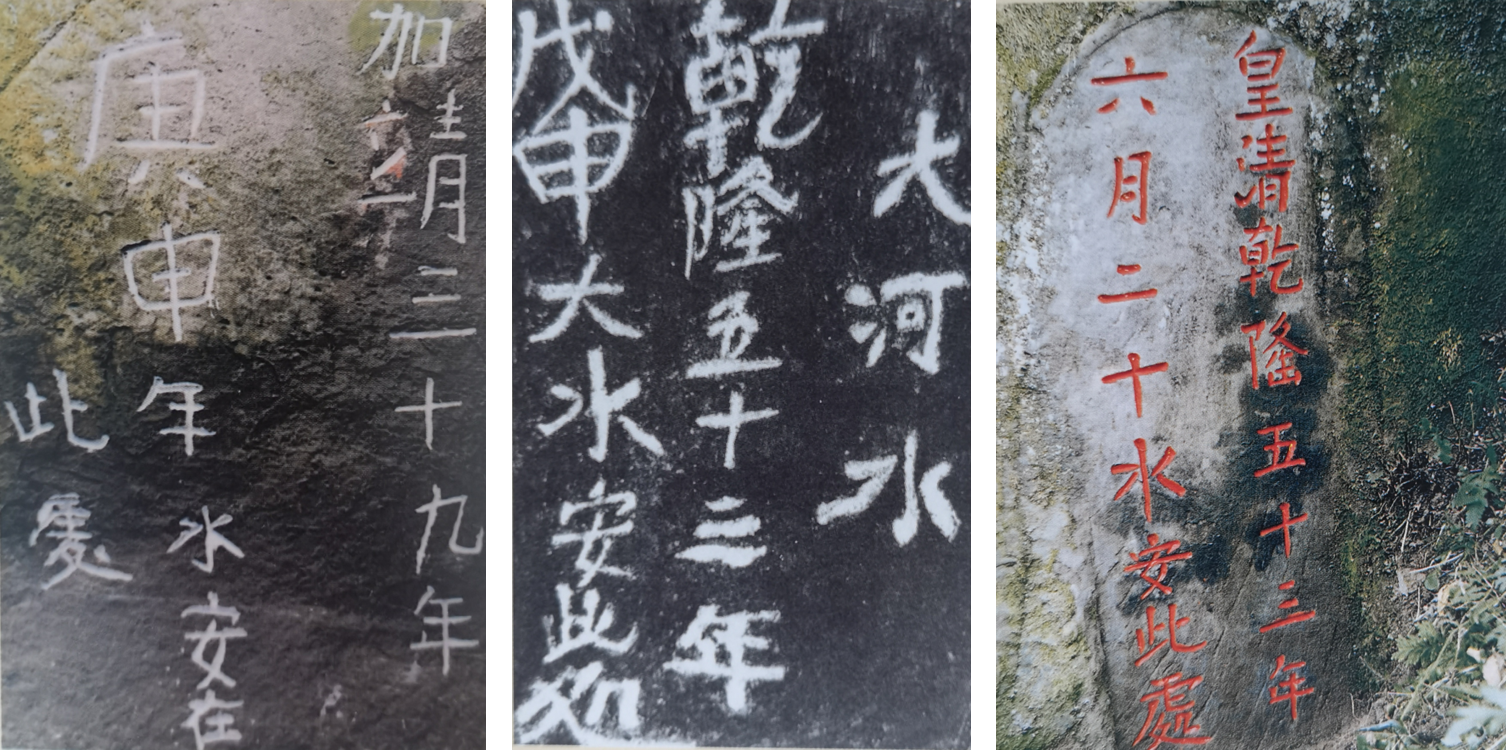 加靖三十九年
庚申年水安在
此處
大河水
乾隆五十三年
戊申大水安此処
皇清乾隆五十三年
六月二十水安此處